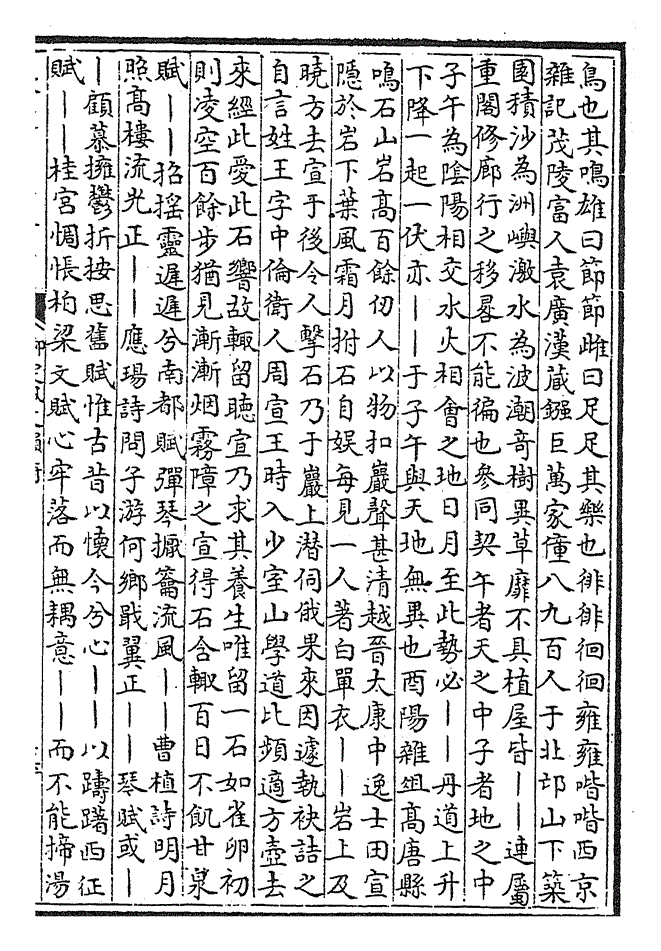 鳥也其鳴雄曰節節雌曰足足其樂也徘徘徊徊雍雍喈喈西京
雜記茂陵富人袁廣漢蔵鏹巨萬家僮八九百人于北邙山下築
園積沙為洲嶼激水為波潮竒樹異草靡不具植屋皆——連屬
重閣修廊行之移晷不能徧也參同契午者天之中子者地之中
子午為陰陽相交水火相會之地日月至此勢必——丹道上升
下降一起一伏亦——于子午與天地無異也酉陽雜俎髙唐縣
鳴石山岩髙百餘仞人以物扣巖聲甚清越晉太康中逸士田宣
隱於岩下葉風霜月拊石自娱每見一人著白單衣——岩上及
曉方去宣于後令人擊石乃于巖上潜伺俄果來因遽執袂詰之
自言姓王字中倫衛人周宣王時入少室山學道比頻適方壺去
來經此愛此石響故輙留聴宣乃求其養生唯留一石如雀卵初
則凌空百餘步猶見漸漸烟霧障之宣得石含輙百日不飢甘泉
賦——招揺靈遲遲兮南都賦彈琴擫籥流風——曹植詩明月
照髙樓流光正——應瑒詩問子游何鄉戢翼正——琴賦或—
—顧慕擁鬱折按思舊賦惟古昔以懷今兮心——以躊躇西征
賦——桂宫惆悵柏梁文賦心牢落而無耦意——而不能揥湯